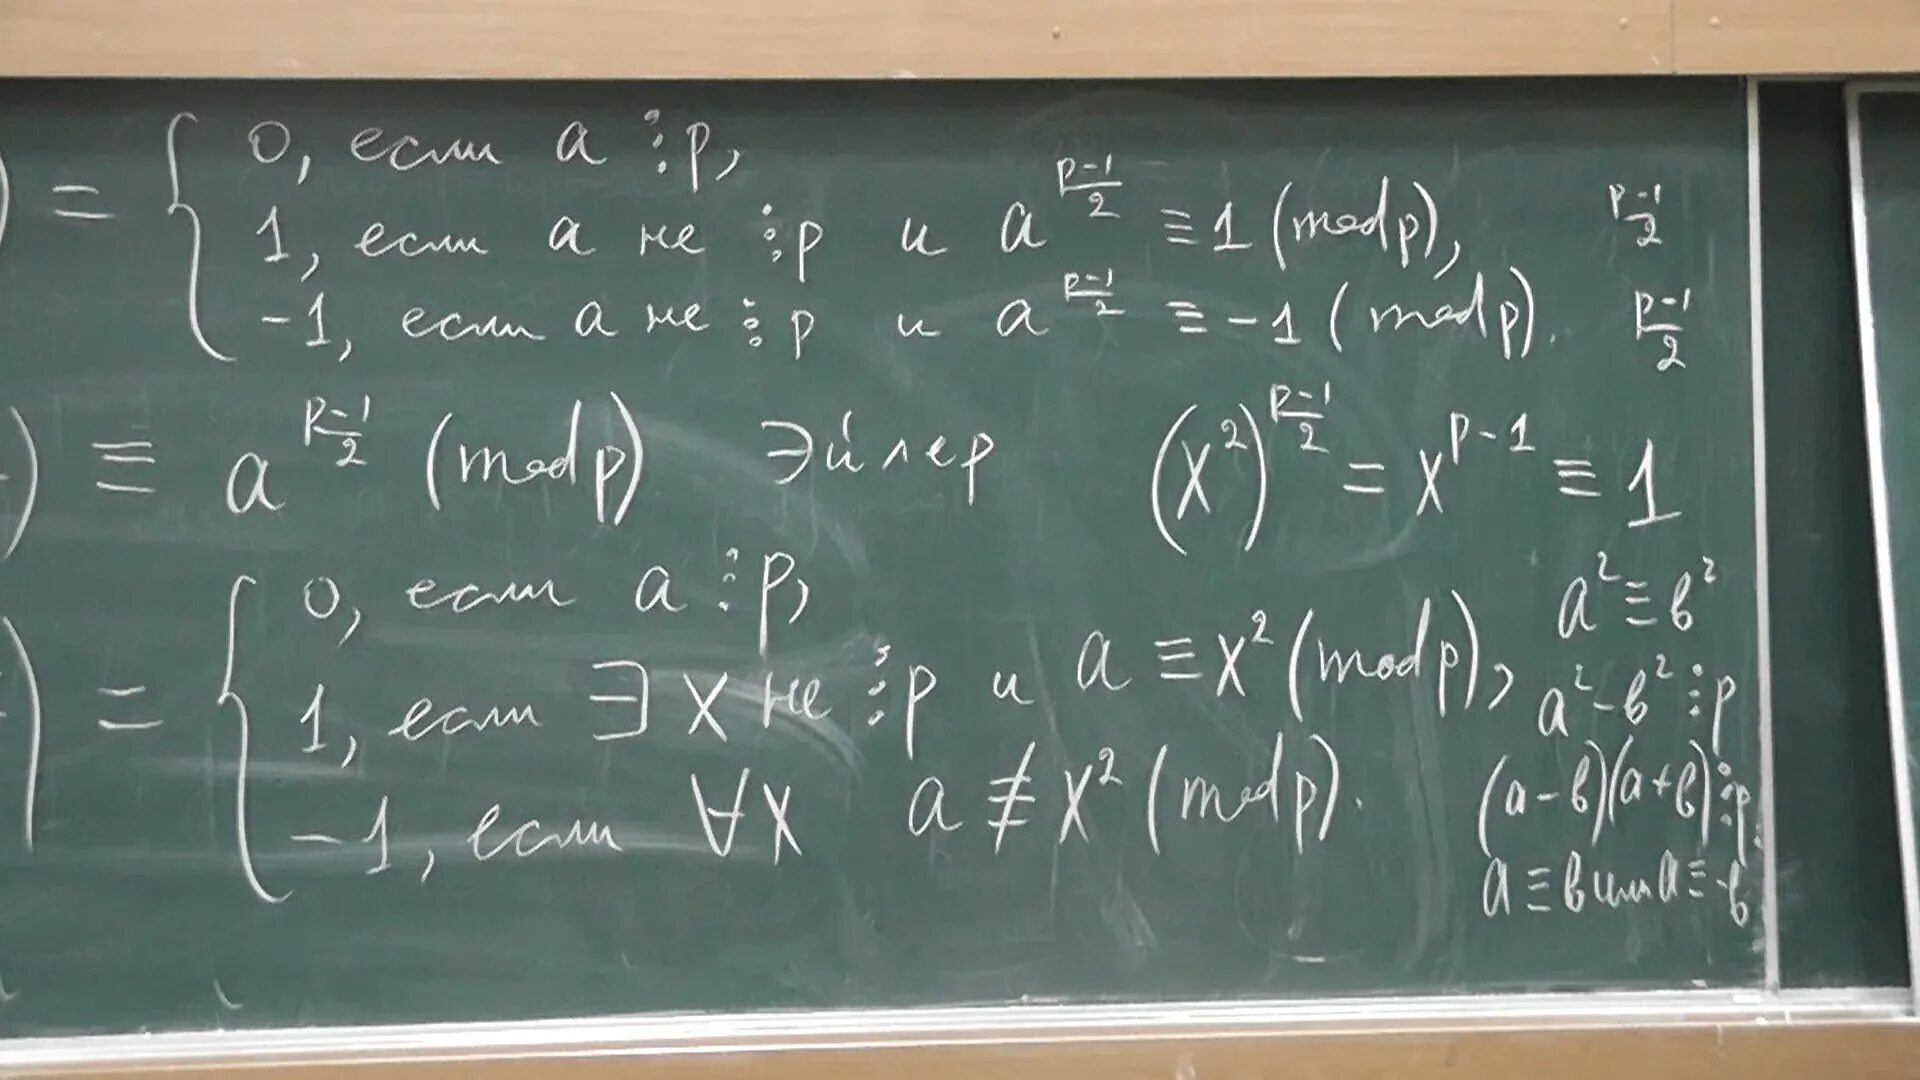 ) = { 0, если a ⋮ p,
1, если a не ⋮ p и a^{\frac{p-1}{2}} ≡ 1 (mod p), \frac{p-1}{2}
-1, если a не ⋮ p и a^{\frac{p-1}{2}} ≡ -1 (mod p). \frac{p-1}{2}
) ≡ a^{\frac{p-1}{2}} (mod p) Эйлер (x²)^{\frac{p-1}{2}} = x^{p-1} ≡ 1
) = { 0, если a ⋮ p,
1, если ∃ x не ⋮ p и a ≡ x² (mod p),
-1, если ∀x a ≢ x² (mod p).
a² ≡ b²
a² - b² ⋮ p
(a - b)(a + b) ⋮ p
a ≡ b или a ≡ -b